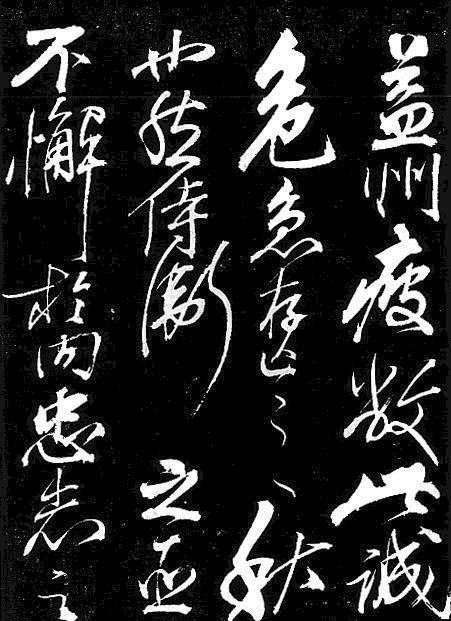 益州疲敝此誠
危急存亡之秋
也然侍衛之臣
不懈於内忠志之